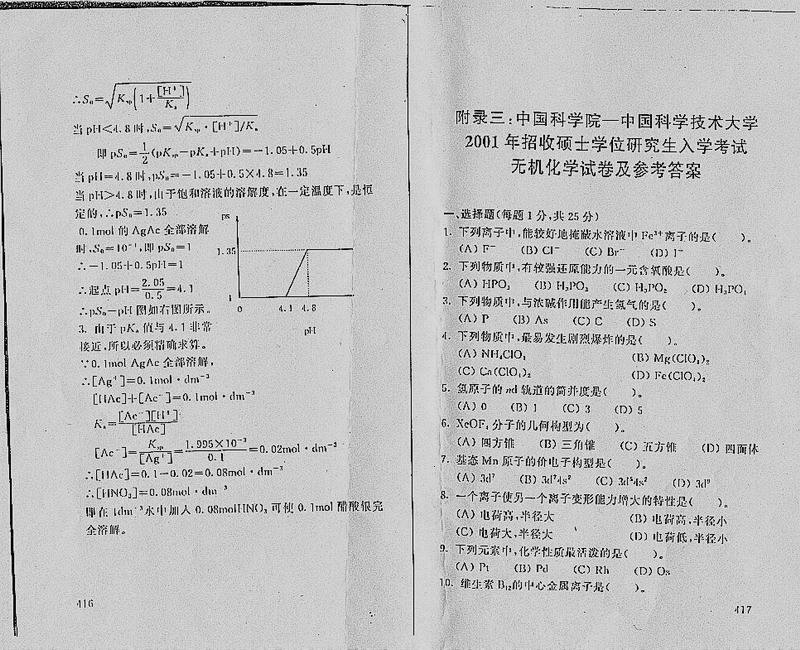 ∴S₀=√(Kₛₚ(1+[H⁺]/Kₐ))
当 pH<4.8 时,S₀=√(Kₛₚ·[H⁺]/Kₐ)
即 pS₀=1/2(pKₛₚ-pKₐ+pH)=-1.05+0.5pH
当 pH=4.8 时,pS₀=-1.05+0.5×4.8=1.35
当 pH>4.8 时,由于饱和溶液的溶解度,在一定温度下,是恒
定的,∴pS₀=1.35
0.1mol 的 AgAc 全部溶解
时,S₀=10⁻¹,即 pS₀=1
∴-1.05+0.5pH=1
∴起点 pH=2.05/0.5=4.1
∴pS₀—pH 图如右图所示。
ps
1.35
1
0 4.1 4.8
pH
3. 由于 pKₐ 值与 4.1 非常
接近,所以必须精确求算。
∵0.1mol AgAc 全部溶解,
∴[Ag⁺]=0.1mol·dm⁻³
[HAc]+[Ac⁻]=0.1mol·dm⁻³
Kₐ=[Ac⁻][H⁺]/[HAc]
[Ac⁻]=Kₛₚ/[Ag⁺]=1.995×10⁻³/0.1=0.02mol·dm⁻³
∴[HAc]=0.1-0.02=0.08mol·dm⁻³
∴[HNO₃]=0.08mol·dm⁻³
即在 1dm⁻³水中加入 0.08molHNO₃ 可使 0.1mol 醋酸银完
全溶解。
416
附录三:中国科学院—中国科学技术大学
2001 年招收硕士学位研究生入学考试
无机化学试卷及参考答案
一、选择题(每题 1 分,共 25 分)
1. 下列离子中,能较好地掩蔽水溶液中 Fe³⁺离子的是( )。
(A) F⁻ (B) Cl⁻ (C) Br⁻ (D) I⁻
2. 下列物质中,有较强还原能力的一元含氧酸是( )。
(A) HPO₃ (B) H₃PO₃ (C) H₃PO₂ (D) H₃PO₄
3. 下列物质中,与浓碱作用能产生氢气的是( )。
(A) P (B) As (C) C (D) S
4. 下列物质中,最易发生剧烈爆炸的是( )。
(A) NH₄ClO₄ (B) Mg(ClO₄)₂
(C) Ca(ClO₄)₂ (D) Fe(ClO₄)₂
5. 氢原子的 nd 轨道的简并度是( )。
(A) 0 (B) 1 (C) 3 (D) 5
6. XeOF₄ 分子的几何构型为( )。
(A) 四方锥 (B) 三角锥 (C) 五方锥 (D) 四面体
7. 基态 Mn 原子的价电子构型是( )。
(A) 3d⁷ (B) 3d⁷4s² (C) 3d⁵4s² (D) 3d⁹
8. 一个离子使另一个离子变形能力增大的特性是( )。
(A) 电荷高,半径大 (B) 电荷高,半径小
(C) 电荷大,半径大 (D) 电荷低,半径小
9. 下列元素中,化学性质最活泼的是( )。
(A) Pt (B) Pd (C) Rh (D) Os
10. 维生素 B₁₂的中心金属离子是( )。
417